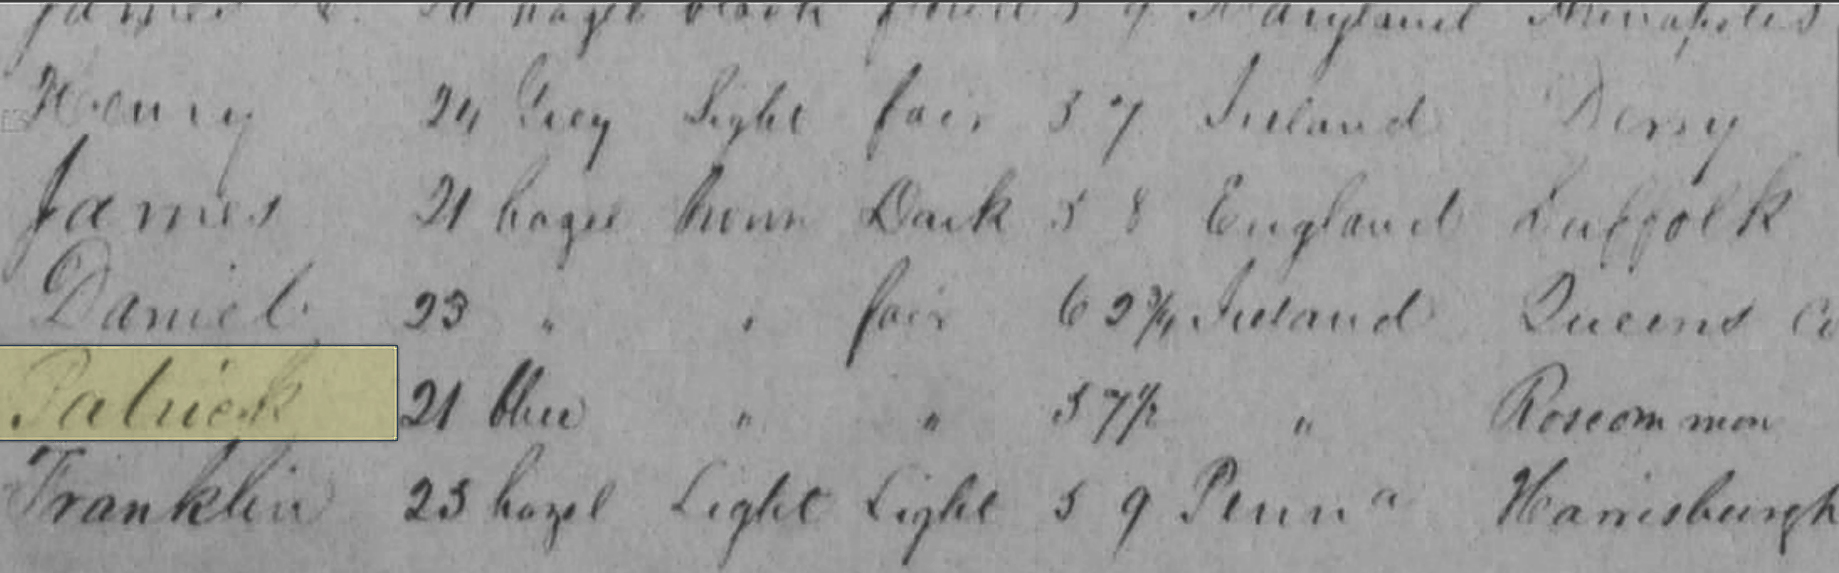 James hazel black 5 9 Maryland Annapolis
Henry 24 Grey Light fair 5 7 Ireland Derry
James 21 hazel brown Dark 5 8 England Suffolk
Daniel 23 " " fair 6 2 3/4 Ireland Queens Co
Patrick 21 blue " " 5 7 1/2 " Roscommon
Franklin 23 hazel Light Light 5 9 Penna Harrisburgh